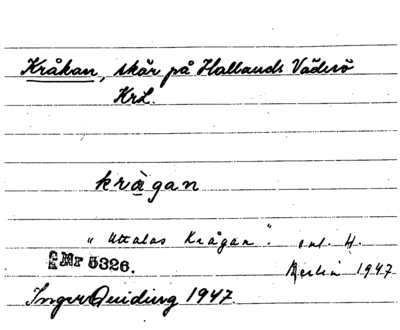 Kråkan, skär på Hallands Väderö
KrL.
krågan
"Uttalas Krågan". enl. H.
Berlin 1947
Nr 5326.
Inger Quiding 1947.